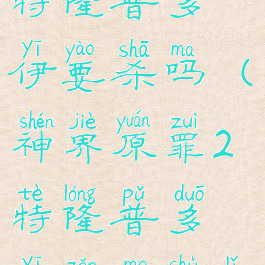 特隆普多
yī yào shā ma
伊要杀吗（
shén jiè yuán zuì
神界原罪2
tè lóng pǔ duō
特隆普多